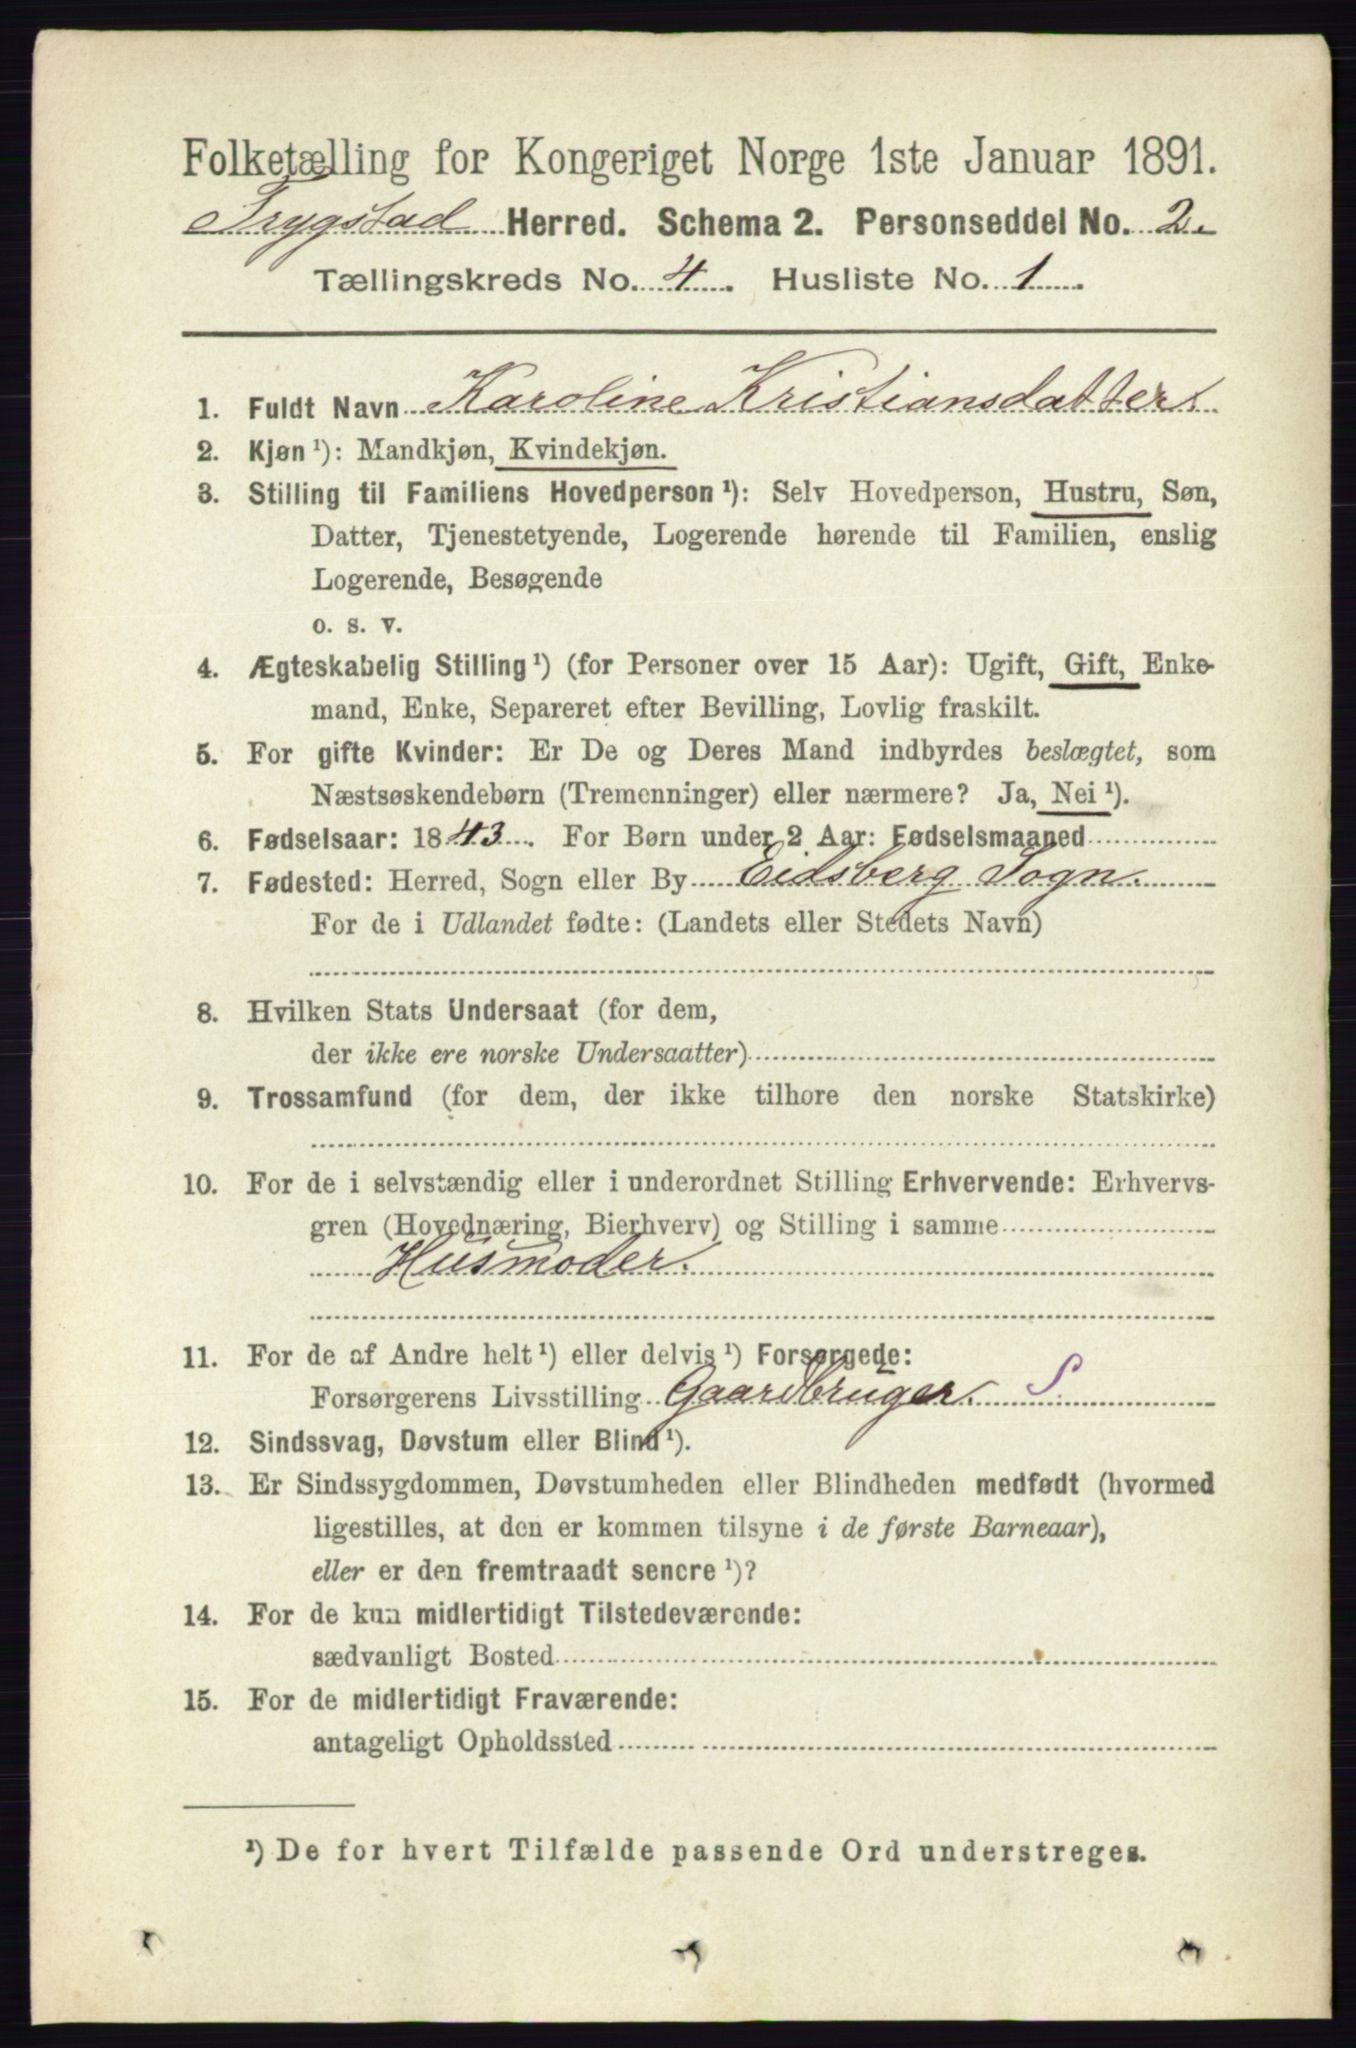 Folketælling for Kongeriget Norge 1ste Januar 1891.
Trygstad Herred. Schema 2. Personseddel No. 2.
Tællingskreds No. 4. Husliste No. 1.
1. Fuldt Navn Karoline Kristiansdatter.
2. Kjøn ¹): Mandkjøn, Kvindekjøn.
3. Stilling til Familiens Hovedperson ¹): Selv Hovedperson, Hustru, Søn,
Datter, Tjenestetyende, Logerende hørende til Familien, enslig
Logerende, Besøgende
o. s. v.
4. Ægteskabelig Stilling ¹) (for Personer over 15 Aar): Ugift, Gift, Enke-
mand, Enke, Separeret efter Bevilling, Lovlig fraskilt.
5. For gifte Kvinder: Er De og Deres Mand indbyrdes beslægtet, som
Næstsøskendebørn (Tremenninger) eller nærmere? Ja, Nei ¹).
6. Fødselsaar: 1843. For Børn under 2 Aar: Fødselsmaaned
7. Fødested: Herred, Sogn eller By Eidsberg Sogn.
For de i Udlandet fødte: (Landets eller Stedets Navn)
8. Hvilken Stats Undersaat (for dem,
der ikke ere norske Undersaatter)
9. Trossamfund (for dem, der ikke tilhøre den norske Statskirke)
10. For de i selvstændig eller i underordnet Stilling Erhvervende: Erhvervs-
gren (Hovednæring, Bierhverv) og Stilling i samme
Husmoder.
11. For de af Andre helt ¹) eller delvis ¹) Forsørgede:
Forsørgerens Livsstilling Gaardbruger. S.
12. Sindssvag, Døvstum eller Blind ¹).
13. Er Sindssygdommen, Døvstumheden eller Blindheden medfødt (hvormed
ligestilles, at den er kommen tilsyne i de første Barneaar),
eller er den fremtraadt senere ¹)?
14. For de kun midlertidigt Tilstedeværende:
sædvanligt Bosted
15. For de midlertidigt Fraværende:
antageligt Opholdssted
¹) De for hvert Tilfælde passende Ord understreges.